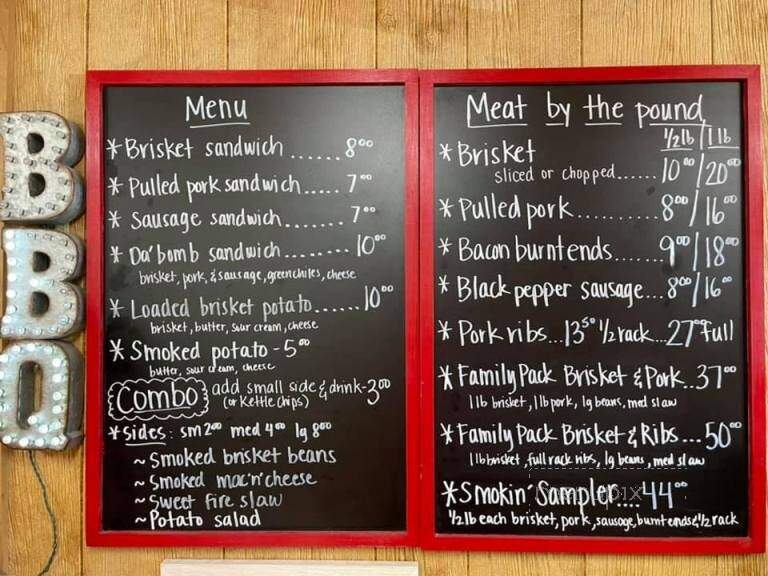 BBQ
Menu
* Brisket sandwich ...... 8⁰⁰
* Pulled pork sandwich ..... 7⁰⁰
* Sausage sandwich ....... 7⁰⁰
* Da'bomb sandwich ........ 10⁰⁰
brisket, pork, & sausage, green chiles, cheese
* Loaded brisket potato ...... 10⁰⁰
brisket, butter, sour cream, cheese
* Smoked potato - 5⁰⁰
butter, sour cream, cheese
Combo add small side & drink - 3⁰⁰
(or Kettle Chips)
* Sides: sm 2⁰⁰ med 4⁰⁰ lg 8⁰⁰
~ Smoked brisket beans
~ Smoked mac'n'cheese
~ Sweet fire slaw
~ Potato salad
Meat by the pound
1/2 lb / 1 lb
* Brisket
sliced or chopped ...... 10⁰⁰/20⁰⁰
* Pulled pork ........... 8⁰⁰/16⁰⁰
* Bacon burnt ends ....... 9⁰⁰/18⁰⁰
* Black pepper sausage ... 8⁰⁰/16⁰⁰
* Pork ribs ... 13⁵⁰ 1/2 rack ... 27⁰⁰ full
* Family Pack Brisket & Pork .. 37⁰⁰
1 lb brisket, 1 lb pork, lg beans, med slaw
* Family Pack Brisket & Ribs ... 50⁰⁰
1 lb brisket, full rack ribs, lg beans, med slaw
* Smokin' Sampler .... 44⁰⁰
1/2 lb each brisket, pork, sausage, burnt ends & 1/2 rack